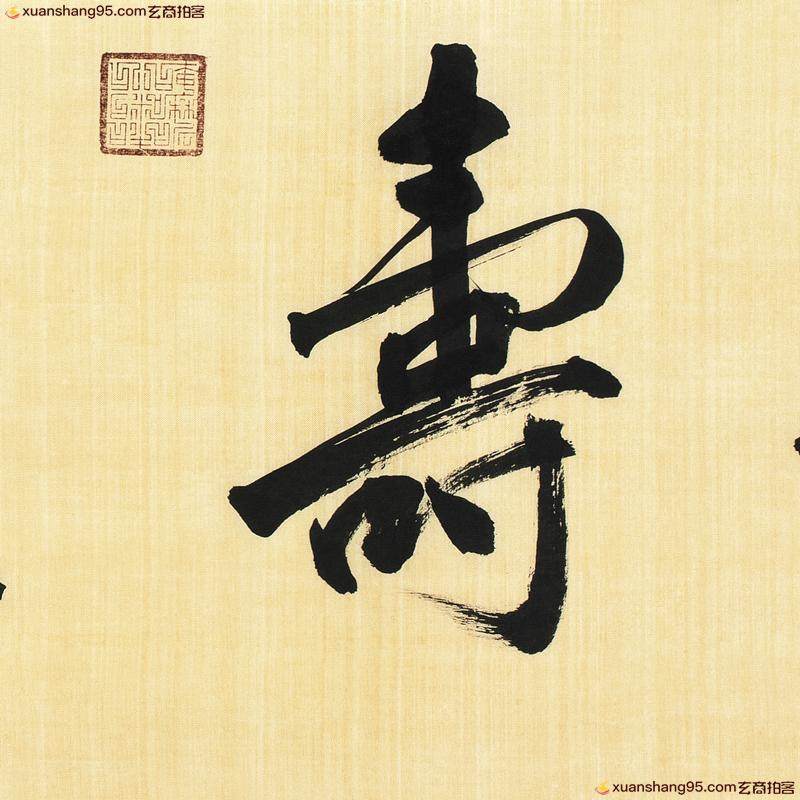 xuanshang95.com玄商拍客
壽
xuanshang95.com玄商拍客